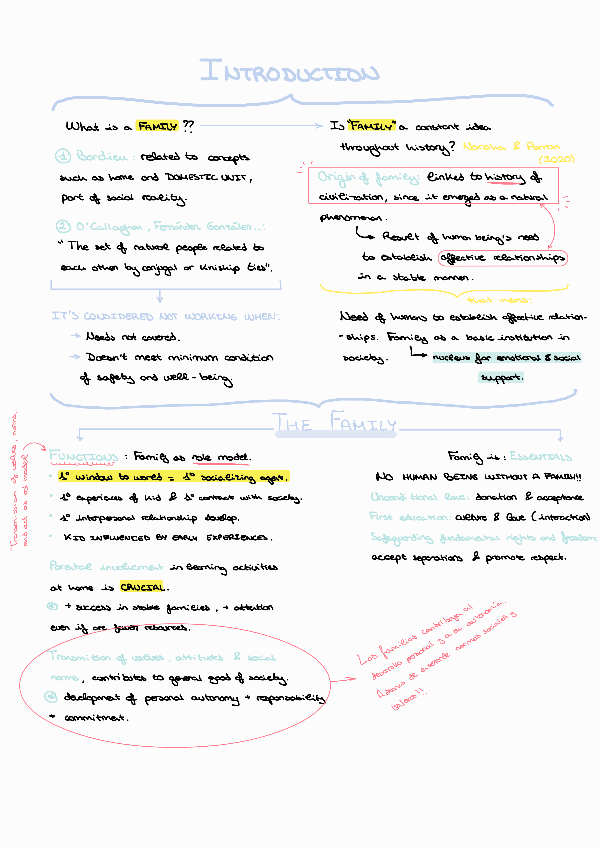 INTRODUCTION
What is a FAMILY ??
① Bordieu: related to concepts
such as home and DOMESTIC UNIT,
part of social reality.
② O'Callaghan, Fernández González...:
"The set of natural people related to
each other by conjugal or kinship ties".
IT'S CONSIDERED NOT WORKING WHEN:
→ Needs not covered.
→ Doesn't meet minimum condition
of safety and well-being
Is "FAMILY" a constant idea
throughout history?
(2020)
Origin of family: linked to history of
civilization, since it emerged as a natural
phenomenon.
↳ Result of human being's need
to establish affective relationships
in a stable manner.
that means:
Need of humans to establish affective relation-
-ships. Family as a basic institution in
society. ↳ nucleus for emotional & social
support.
THE FAMILY
Transmission of values, norms,
and act as rol model
FUNCTIONS : Family as role model.
· 1º window to world = 1º socializing agent.
· 1º experiences of kid & 1º contact with society.
· 1º interpersonal relationship develop.
· KID INFLUENCED BY EARLY EXPERIENCES.
Parental involvement in learning activities
at home is CRUCIAL.
+ success in stable families, + attention
even if are fewer resources.
Transmition of values, attitudes & social
norms, contributes to general good of society.
development of personal autonomy + responsability
+ commitment.
Family is: ESSENTIALS
NO HUMAN BEING WITHOUT A FAMILY!!
Unconditional love: donation & acceptance
First education: culture & love (interaction)
Safeguarding fundamental rights and freedom:
accept separations & promote respect.
Las familias contribuyen al
desarrollo personal y a su autonomía.
Además de enseñarle normas sociales y
valores!!